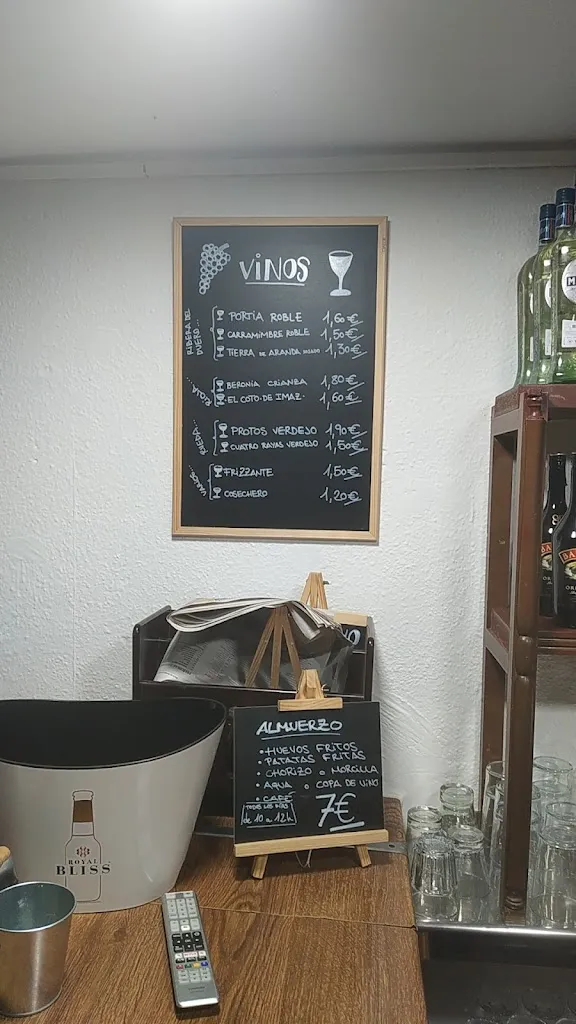 VINOS
RIBERA DEL DUERO...
PORTÍA ROBLE 1,60€
CARRAMIMBRE ROBLE 1,50€
TIERRA DE ARANDA 1,30€
RIOJA...
BERONIA CRIANZA 1,80€
EL COTO DE IMAZ 1,60€
RUEDA...
PROTOS VERDEJO 1,90€
CUATRO RAYAS VERDEJO 1,50€
VARIOS...
FRIZZANTE 1,50€
COSECHERO 1,20€
ALMUERZO
• HUEVOS FRITOS
• PATATAS FRITAS
• CHORIZO O MORCILLA
• AGUA O COPA DE VINO
• CAFÉ
TODOS LOS DÍAS
de 10 a 12h
7€
ROYAL
BLISS